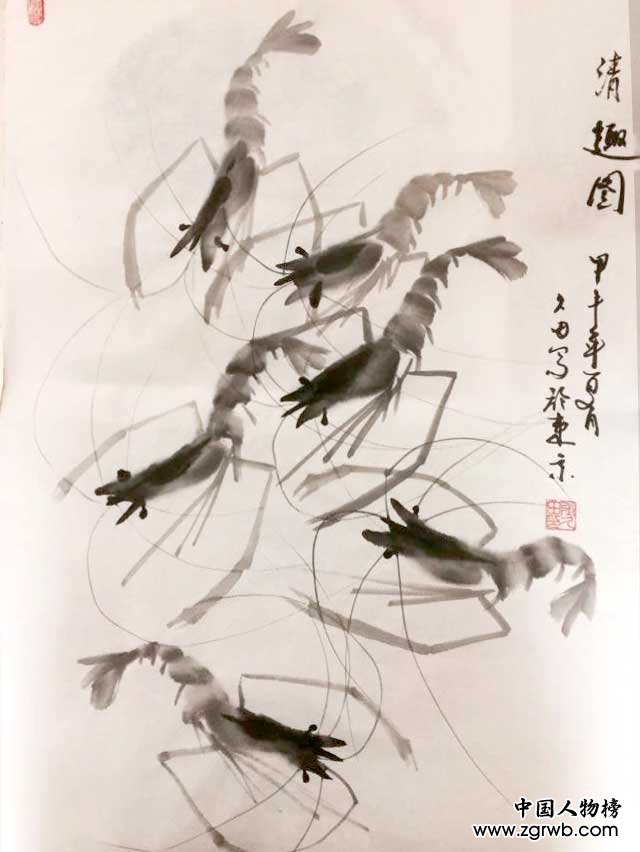 清趣图
甲午年百夏月
久田写於東京
中国人物榜
www.zgrwb.com